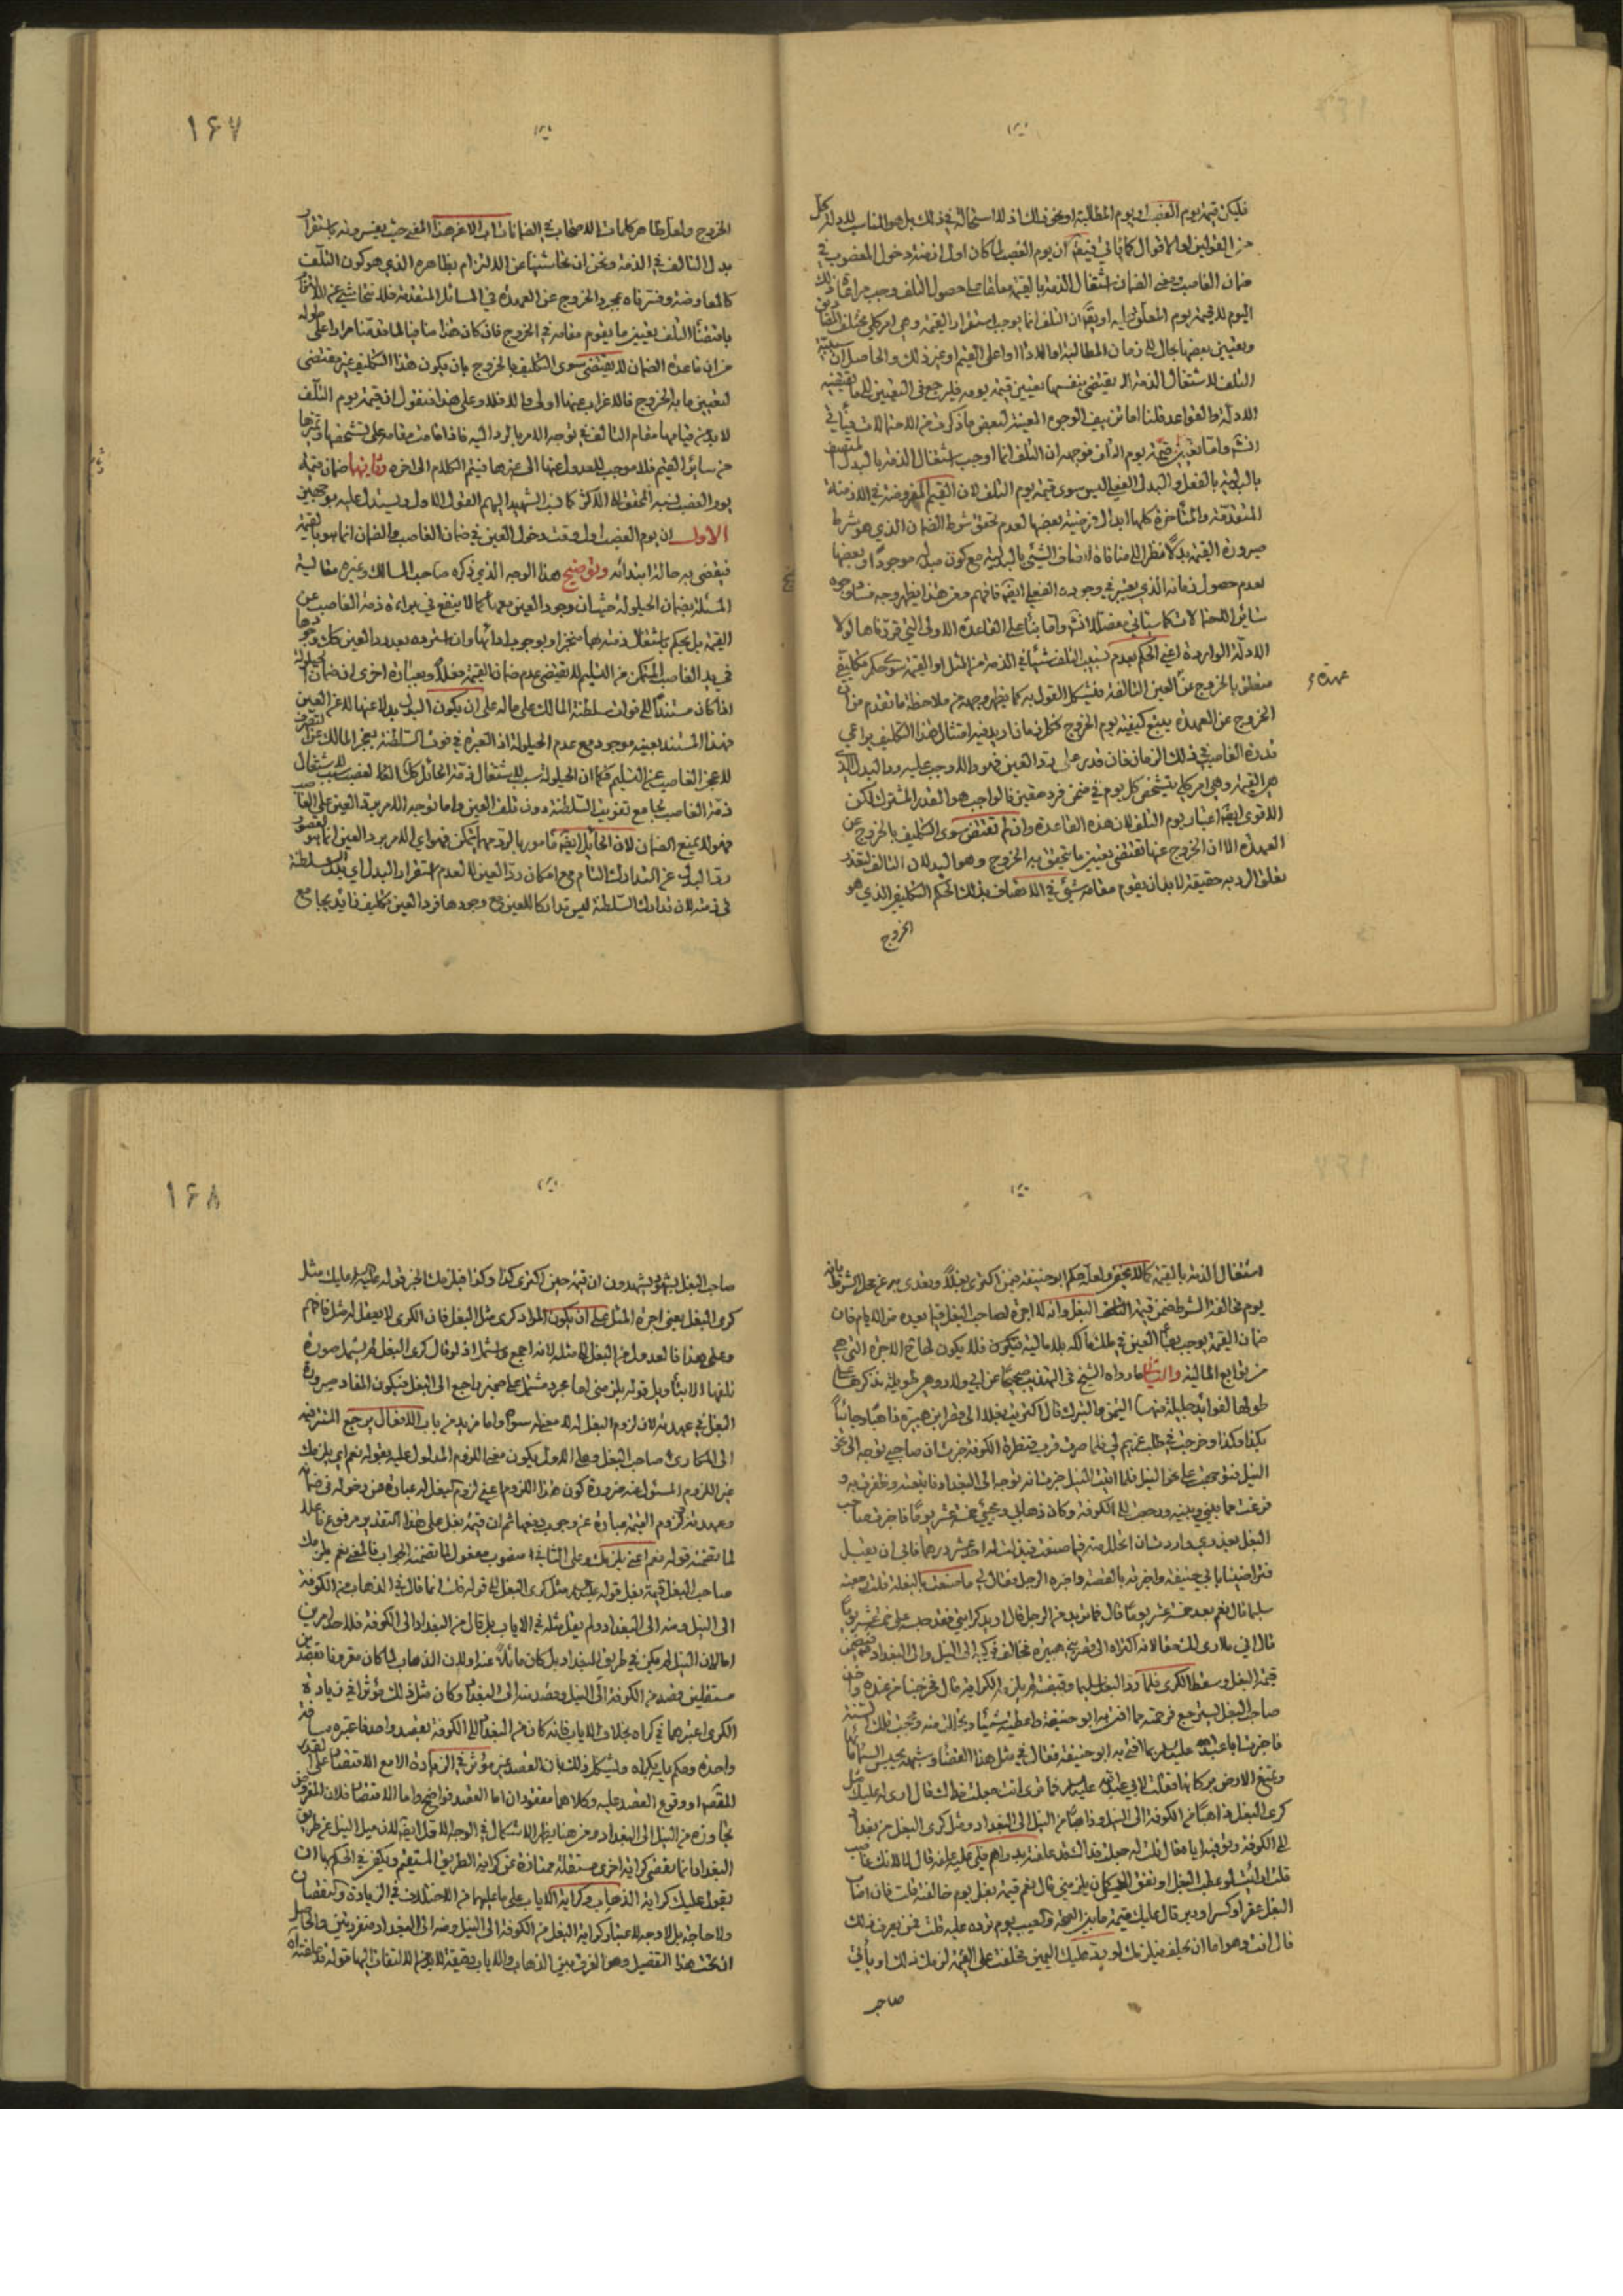 فليكن قيمة يوم الغصب او يوم المطالبة او نحو ذلك اذ لا استحالة في ذلك بل هو المناسب للدولة كل
من القولين او الاقوال كما يأتي فيتم ان يوم الغصب لما كان اول ازمنة دخول المغصوب في
ضمان الغاصب ومعنى الضمان اشتغال الذمة بالقيمة معلقا على حصول التلف وجب مراعات ذلك
اليوم لا قيمة يوم المعلق عليه او يقال ان التلف انما يوجب استقرار القيمة وهي امر كلي مختلف المصاديق
وتعيين بعضها بحال الى زمان المطالبة او الاداء او اعلى القيم او غير ذلك والحاصل ان سببية
التلف لاشتغال الذمة لا يقتضي بنفسها تعيين قيمة يومه فليرجع في التعيين الى ما يقتضيه
الادلة والقواعد قلنا اما تزييف الوجوه المعينة لبعض ما ذكرت من الاحتمالات فيأتي
انش واما تعيين قيمة يوم التلف فوجهه ان التلف انما اوجب اشتغال الذمة بالبدل المتصف
بالبدلية بالفعل والبدل الفعلي ليس سوى قيمة يوم التلف لان القيم المفروضة في الازمنة
المتقدمة والمتأخرة كلها ابدال فرضية بعضها لعدم تحقق شرط الضمان الذي هو شرط
صيرورة القيمة بدلا نظرا الى منافاة اتصاف الشيء بالبدلية مع كون مبدله موجودا وبعضها
لعدم حصول زمانه الذي يعتبر في وجوده الفعلي ايضا فافهم ومن هذا يظهر وجه فساد وجوه
سائر الاحتمالات كما سيأتي مفصلا انش واما بناء على القاعدة الاولى التي قررناها لولا
الادلة الواردة اعني الحكم بعدم تسبيب التلف شيئا في الذمة من المثل او القيمة سوى حكم تكليفي
متعلق بالخروج عن العين التالفة فيشكل القول به كما يظهر وجهه من ملاحظة ما تقدم من ان
عهدة
الخروج عن العهدة يتبع كيفية يوم الخروج فكل زمان اريد فيه امتثال هذا التكليف يراعي
قدرة الغاصب في ذلك الزمان فان قدر على رد العين فهو والا وجب عليه رد البدل الذي
هو القيمة وهي امر كلي يتشخص كل يوم في ضمن فرد معين فالواجب هو القدر المشترك لكن
الاقوى ايضا اعتبار يوم التلف لان هذه القاعدة وان لم تقتض سوى التكليف بالخروج عن
العهدة الا ان الخروج عنها تقتضي تعيين ما يتحقق به الخروج وهو البدل لان التالف لتعذر
تعلق الرد به حقيقة لا بد ان يقوم مقامه شيء في الاتصاف بذلك الحكم التكليفي الذي هو
الخروج
١٦٧
الخروج ولعل ظاهر كلمات الاصحاب في الضمانات اب الا عن هذا المعنى حيث يعبرون باستقرار
بدل التالف في الذمة ونحن ان تحاشينا عن الالتزام بظاهره الذي هو كون التلف
كالمعاوضة وفسرناه بمجرد الخروج عن العهدة في المسائل المتقدمة فلا نتحاشى عن الالتزام
باقتضاء التلف تعيين ما يقوم مقامه في الخروج فان كان هذا منافيا لما تقدمنا مرارا على طوله
من ان قاعدة الضمان لا يقتضي سوى التكليف بالخروج بان يكون هذا التكليف غير مقتضي
لتعيين ما به الخروج فالاغراب عنها اولى والا فلا وعلى هذا فنقول ان قيمة يوم التلف
لا بد من قيامها مقام التالف في توجه الامر بالرد اليه فاذا قامت مقامه على تشخصها وتميزها
من سائر القيم فلا موجب للعدول عنها الى غيرها فيتم الكلام الى اخره وثانيها ضمان قيمة
يوم الغصب نسبه المحقق الى الاكثر كما نسب الشهيد اليهم القول الاول ويستدل عليه بوجهين
الاول ان يوم الغصب اول وقت دخول العين في ضمان الغاصب والضمان انما هو بالقيمة
فيقضي به حالة ابتدائه وتوضيح هذا الوجه الذي ذكره صاحب المسالك وغيره مقايسة
المسئلة بضمان الحيلولة حيث ان وجود العين معها كما لا ينفع في براءة ذمة الغاصب عن
القيمة بل يحكم باشتغال ذمته بها منجزا وبوجوب ادائها وان استرده بعد رد العين فكك وجودها
في يد الغاصب المتمكن من التسليم لا يقتضي عدم ضمان القيمة فعلا وبعبارة اخرى ان ضمان الحيلولة
اذا كان مستندا الى فوات سلطنة المالك على ماله على ان يكون البدل بدلا عنها لا عن العين
فهذا المستند بعينه موجود مع عدم الحيلولة اذ العبرة في فوت السلطنة بعجز المالك عن التصرف
لا عجز الغاصب عن التسليم فكما ان الحيلولة سبب لاشتغال ذمة الحائل كك الغصب سبب لاشتغال
ذمة الغاصب بجامع تفويت السلطنة دون تلف العين واما توجه الامر برد العين على الغاصب
فهو لا يمنع الضمان لان الحائل ايضا مأمور بالرد مهما يتمكن فهو اي الامر برد العين انما هو لقصور
رد البدل عن التدارك التام مع امكان رد العين لا لعدم استقرار البدل اي بدل السلطنة
في ذمته لان تدارك السلطنة ليس تداركا للعين مع وجودها فرد العين تكليف زائد يجامع
اشتغال الذمة بالقيمة كما لا يخفى ولعله حكم ابو حنيفة فيمن اكترى بغلا وتعدى به عن محل الشرط بانه
يوم مخالفة الشرط ضمن قيمة البغل وانه لا اجرة لصاحب البغل فيما بعده من الايام فان
ضمان القيمة يوجب بقاء العين في ملك مالكه بلا مالية فيكون فلا يكون لها ح الاجرة التي هي
من توابع المالية والثاني ما رواه الشيخ في التهذيب صحيحا عن ابي ولاد وهي طويلة نذكرها على
طولها لفوائد جليلة منها التيمن والتبرك قال اكتريت بغلا الى قصر ابن هبيرة ذاهبا وجائيا
بكذا وكذا وخرجت في طلب غريم لي فلما صرت قرب قنطرة الكوفة خبرت ان صاحبي توجه الى نحو
النيل فتوجهت على نحو النيل فلما اتيت النيل خبرت انه توجه الى البغداد فاتبعته وظفرت به و
فرغت مما بيني وبينه ورجعت الى الكوفة وكان ذهابي ومجيئي خمسة عشر يوما فاخبرت صاحب
البغل بعذري واردت ان اتحلل منه فيما صنعت فبذلت له خمسة عشر درهما فابى ان يقبل
فتراضينا بابي حنيفة واخبرته بالقصة واخبره الرجل فقال لي ما صنعت بالبغلة قلت رجعته
سليما قال نعم بعد خمسة عشر يوما قال فما تريد من الرجل قال اريد كرى بغلي فقد حبسه علي خمسة عشر يوما
قال اني ما ارى لك حقا لانه اكتراه الى قصر بني هبيرة فخالف فركبه الى النيل والى البغداد فضمن
قيمة البغل وسقط الكرى فلما رد البغل سليما وقبضته لم يلزمه الكرا قال فخرجنا من عنده واخذ
صاحب البغل يسترجع فرحمته مما افتى به ابو حنيفة واعطيته شيئا وتحاللت منه وحججت تلك السنة
فاخبرت ابا عبد الله عليه السلام بما افتى به ابو حنيفة فقال في مثل هذا القضاء وشبهه يحبس السماء مائها
وتمنع الارض بركاتها فقلت لابي عبد الله عليه السلام فما ترى انت جعلت فداك قال ارى له عليك مثل
كرى البغل ذاهبا من الكوفة الى النيل وذاهبا من النيل الى البغداد ومثل كرى البغل من بغداد
الى الكوفة وتوفيه اياه قال قلت له جعلت فداك قد علفته بدراهم فلي عليه علفه قال لا لانك غاصب
قلت ارأيت لو عطب البغل او نفق اليس كان يلزمني قال نعم قيمة بغل يوم خالفته قلت فان اصاب
البغل عقر او كسر او دبر قال عليك قيمة ما بين الصحة والعيب يوم ترده عليه قلت فمن يعرف ذلك
قال انت وهو اما ان يحلف فيلزمك او يرد عليك اليمين فحلفت على القيمة لزمك ذلك او يأتي
صاحب
١٦٨
صاحب البغل بشهود يشهدون ان قيمته حين اكترى كذا وكذا فيلزمك الخبر قوله عليه السلام عليك مثل
كرى البغل يعني اجرة المثل على ان يكون المراد كرى مثل البغل فان الكرى لا يعقل له مثل فافهم
وعلى هذا فالعدول من البغل الى مثله لانه اجمع واشمل اذ لو قال كرى البغل لم يشمل صورة
تلفها الا بتأويل قوله يلزمني اما مجرد مشتمل على ضمير راجع الى البغل فيكون المفاد صيرورة
البغل في عهدته لان لزوم البغل له لا معنى له سواه واما مزيد من باب الافعال يرجع المستتر فيه
الى المكاري صاحب البغل وعلى الاول يكون معنى اللزوم المدلول عليه بقوله نعم اي يلزمك
غير اللزوم المسئول عنه ضرورة كون هذا اللزوم اعني لزوم البغل له عبارة عن دخوله في ضمانه
وعهدته ولزوم القيمة عبارة عن وجوب دفعها ثم ان قيمة بغل على هذا التقدير مرفوع فاعلا
لما تضمنه قوله نعم اعني يلزمك وعلى الثاني منصوب مفعول لما تضمنه الجواب فالمعنى نعم يلزمك
صاحب البغل قيمة بغل قوله عليه السلام مثل كرى البغل الى قوله قلت انما قال في الذهاب من الكوفة
الى النيل ومنه الى البغداد ولم يقل مثله في الاياب بل قال من البغداد الى الكوفة فلاحد امرين
اما لان النيل لم يكن في طريق البغداد بل كان مائلا عنه او لان الذهاب لما كان مقرونا بقصدين
مستقلين قصد من الكوفة الى النيل وقصد منه الى البغداد وكان مثل ذلك يؤثر في زيادة
الكرى اعتبرهما في كراه بخلاف الاياب فانه كان من البغداد الى الكوفة بقصد واحد فاعتبره مسافة
واحدة وحكم بان كراه ويشكل ذلك بان القصد غير مؤثر في الزيادة الا مع الاقتضاء على القدر
المقصود او وقوع العقد عليه وكلاهما مفقودان اما العقد فواضح واما الاقتضاء فلان المفروض
تجاوزه من النيل الى البغداد ومن هنا يظهر الاشكال في الوجه الاول ايضا لان ميل النيل عن طريق
البغداد انما يقتضي كراية اخرى مستقلة ممتازة عن كراية الطريق المستقيم ويكفي في الحكم بها ان
يقول عليك كراية الذهاب وكراية الاياب على ما عليهما من الاختلاف في الزيادة والنقصان
ولا حاجة بل لا وجه لاعتبار كراية البغل من الكوفة الى النيل ومنه الى البغداد منفردتين والحاصل
ان تحت هذا التفصيل وهو الفرق بين الذهاب والاياب دقيقة لا بد من الالتفات اليها قوله قد علفته اه